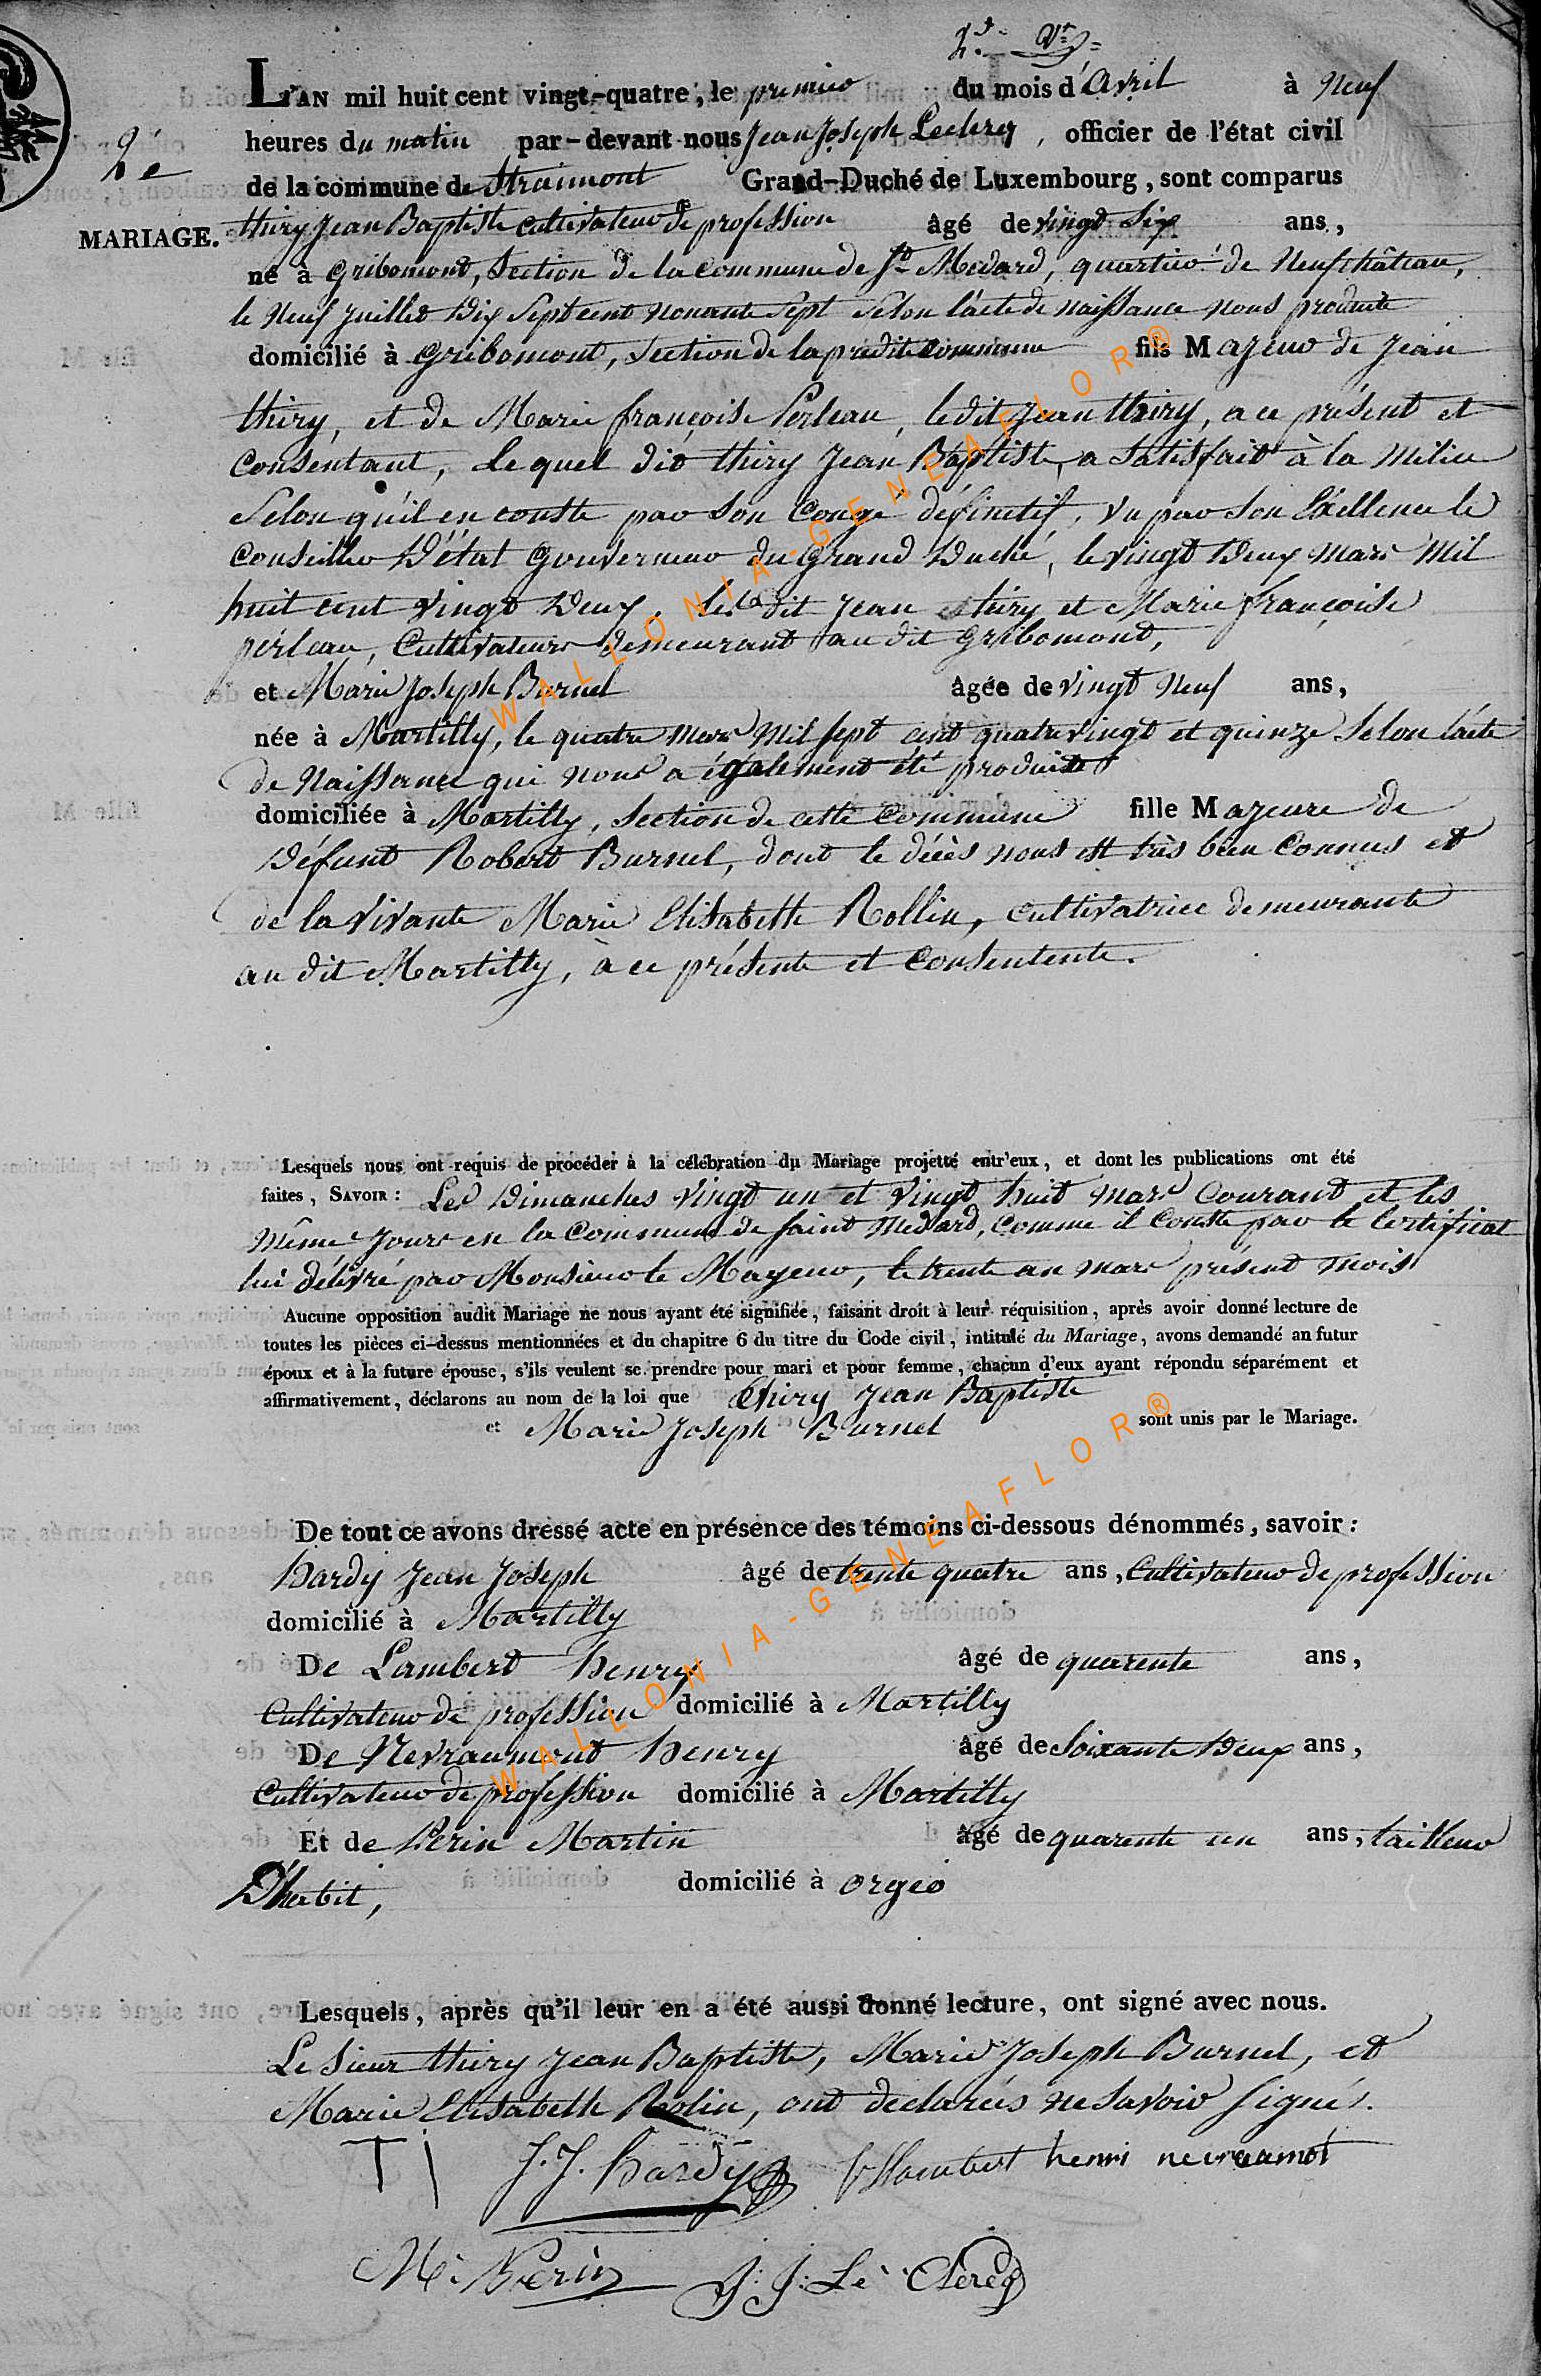 L'AN mil huit cent vingt-quatre, le premier du mois d'Avril à Neuf
heures du matin par-devant nous Jean Joseph Leclercq, officier de l'état civil
de la commune de Straimont Grand-Duché de Luxembourg, sont comparus
2e
MARIAGE.
thiry Jean Baptiste cultivateur de profession âgé de vingt Six ans,
né à Gribomont, Section de la commune de St Medard, quartier de Neufchâteau,
le Neuf Juillet Dix Sept cent nonante Sept Selon l'acte de naissance nous produite
domicilié à Gribomont, Section de la predite Commune fils Majeur de Jean
thiry, et de Marie françoise Perleau, ledit Jean thiry, a ce présent et
Consentant, Le quel dit thiry Jean Baptiste, a Satisfait à la Milice
Selon qu'il en conste par Son Congé définitif, Vu par Son Exellence le
Conseiller D'état Gouverneur du Grand Duché, le vingt Deux Mars Mil
huit cent vingt Deux. dit Jean thiry et Marie françoise
perleau, Cultivateurs demeurant au dit Gribomont,
et Marie Joseph Burnel âgée de vingt Neuf ans,
née à Martilly, le quatre Mars Mil Sept cent quatre vingt et quinze Selon l'acte
de Naissance qui nous a également été produite
domiciliée à Martilly, Section de cette Commune fille Majeure de
Défunt Robert Burnel, dont le décès nous est très bien Connus et
de la Vivante Marie Elisabeth Rollin, cultivatrice demeurante
au dit Martilly, à ce présente et Consentente.
Lesquels nous ont requis de procéder à la célébration du Mariage projetté entr'eux, et dont les publications ont été
faites, SAVOIR : Les Dimanches Vingt un et Vingt huit Mars Courant et les
Même Jours en la Commune de Saint Medard, Comme il Conste par le Certificat
lui délivré par Monsieur le Mayeur, le trente un mars présent mois
Aucune opposition audit Mariage ne nous ayant été signifiée, faisant droit à leur réquisition, après avoir donné lecture de
toutes les pièces ci-dessus mentionnées et du chapitre 6 du titre du Code civil, intitulé du Mariage, avons demandé au futur
époux et à la future épouse, s'ils veulent se prendre pour mari et pour femme, chacun d'eux ayant répondu séparément et
affirmativement, déclarons au nom de la loi que Thiry Jean Baptiste
et Marie Joseph Burnel sont unis par le Mariage.
De tout ce avons dressé acte en présence des témoins ci-dessous dénommés, savoir :
Hardy Jean Joseph âgé de trente quatre ans, Cultivateur de profession
domicilié à Martilly
De Lambert henry âgé de quarente ans,
Cultivateur de profession domicilié à Martilly
De Nevraumont henry âgé de Soixante Deux ans,
Cultivateur de profession domicilié à Martilly
Et de Perin Martin âgé de quarente un ans, tailleur
D'habit, domicilié à orgéo
Lesquels, après qu'il leur en a été aussi donné lecture, ont signé avec nous.
Le Sieur thiry Jean Baptiste, Marie Joseph Burnel, et
Marie Elisabeth Rolin, ont declarés ne Savoir Signés.
J. J. hardy Lambert henri nevraumot
M. Perin J. J. Le Clercq
WALLONIA-GENEAFLOR®
WALLONIA-GENEAFLOR®